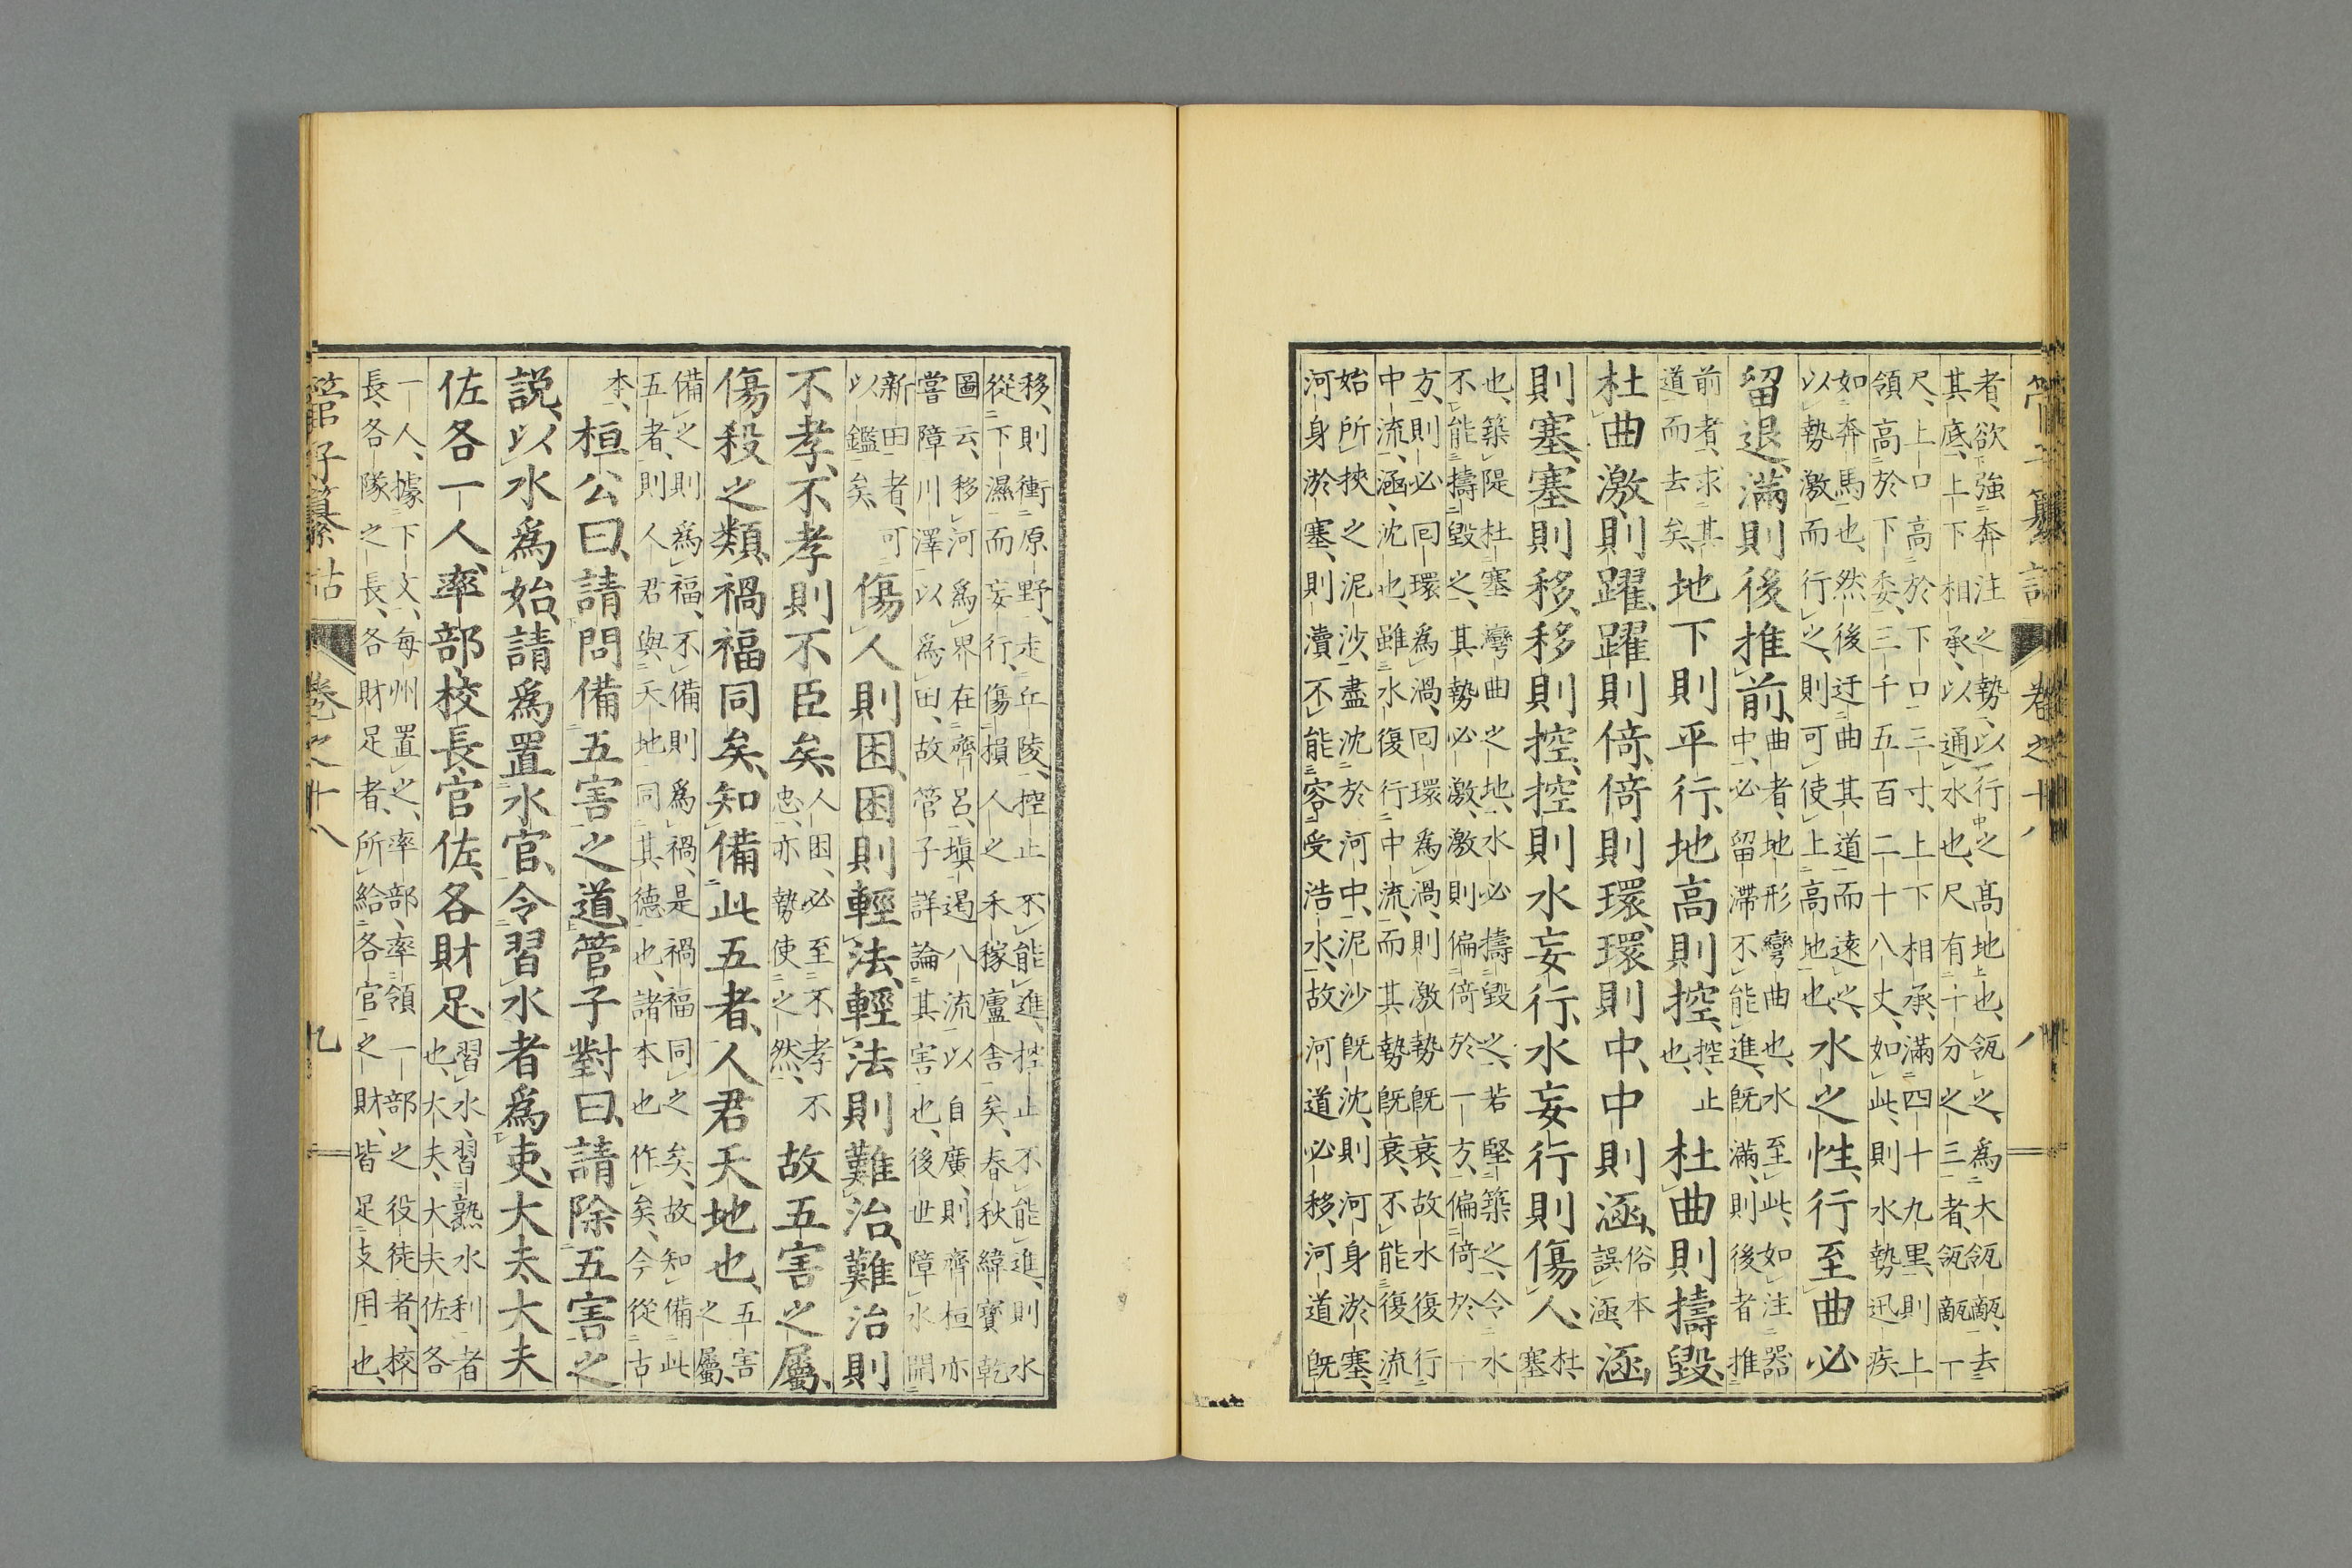 管子纂詁　卷之十八　八
者、欲強奔注之勢、以行之高地也、瓴之、爲大瓴甋、去
其底、上下相承、以通水也、尺有十分之三者、瓴甋下
尺、上口高於下口三寸、上下相承、滿四十九里、則上
領高於下委、三千五百二十八丈、如此、則水勢迅疾
如奔馬也、然後迂曲其道而遠之、
以勢激而行之、則可使上高地也、
水之性、行至曲必
留退、滿則後推前、
曲者、地形彎曲也、水至此、如注器
中、必留滯不能進、既滿、則後者推
前者、求其
道而去矣、
地下則平行、地高則控、
控、止
也、
杜曲則擣毀、
杜曲激則躍、躍則倚、倚則環、環則中、中則涵、
俗本
誤涵、
涵
則塞、塞則移、移則控、控則水妄行、水妄行則傷人、
杜、
塞
也、築隄杜塞彎曲之地、水必擣毀之、若堅築之、令水
不能擣毀之、其勢必激、激則偏倚於一方、偏倚於一
方、則必回環爲渦、回環爲渦、則激勢既衰、故水復行
中流、涵、沈也、雖水復行中流、而其勢既衰、不能復流
始所挾之泥沙、盡沈於河中、泥沙既沈、則河身淤塞、
河身淤塞、則瀆不能容受浩水、故河道必移、河道既
移、則衝原野、走丘陵、控止不能進、控止不能進、則水
從下濕而妄行、傷損人之禾稼廬舍矣、春秋緯寶乾
圖云、移河爲界在齊呂、塡遏八流以自廣、則齊桓亦
嘗障川澤以爲田、故管子詳論其害也、後世障水開
新田者、可
以鑑矣、
傷人則困、困則輕法、輕法則難治、難治則
不孝、不孝則不臣矣、
人困、必至不孝不
忠、亦勢使之然、
故五害之屬、
傷殺之類、禍福同矣、知備此五者、人君天地也、
五害
之屬、
備之則爲福、不備則爲禍、是禍福同之矣、故知備此
五者、則人君與天地同其德也、諸本也作矣、今從古
本、
桓公曰、請問備五害之道、管子對曰、請除五害之
說、以水爲始、請爲置水官、令習水者爲吏、大夫大夫
佐各一人、率部校長官佐、各財足、
習水、習熟水利者
也、大夫、大夫佐各
一人、據下文、每州置之、率部、率領一部之役徒者、校
長、各隊之長、各財足者、所給各官之財、皆足支用也、
管子纂詁　卷之十八　九